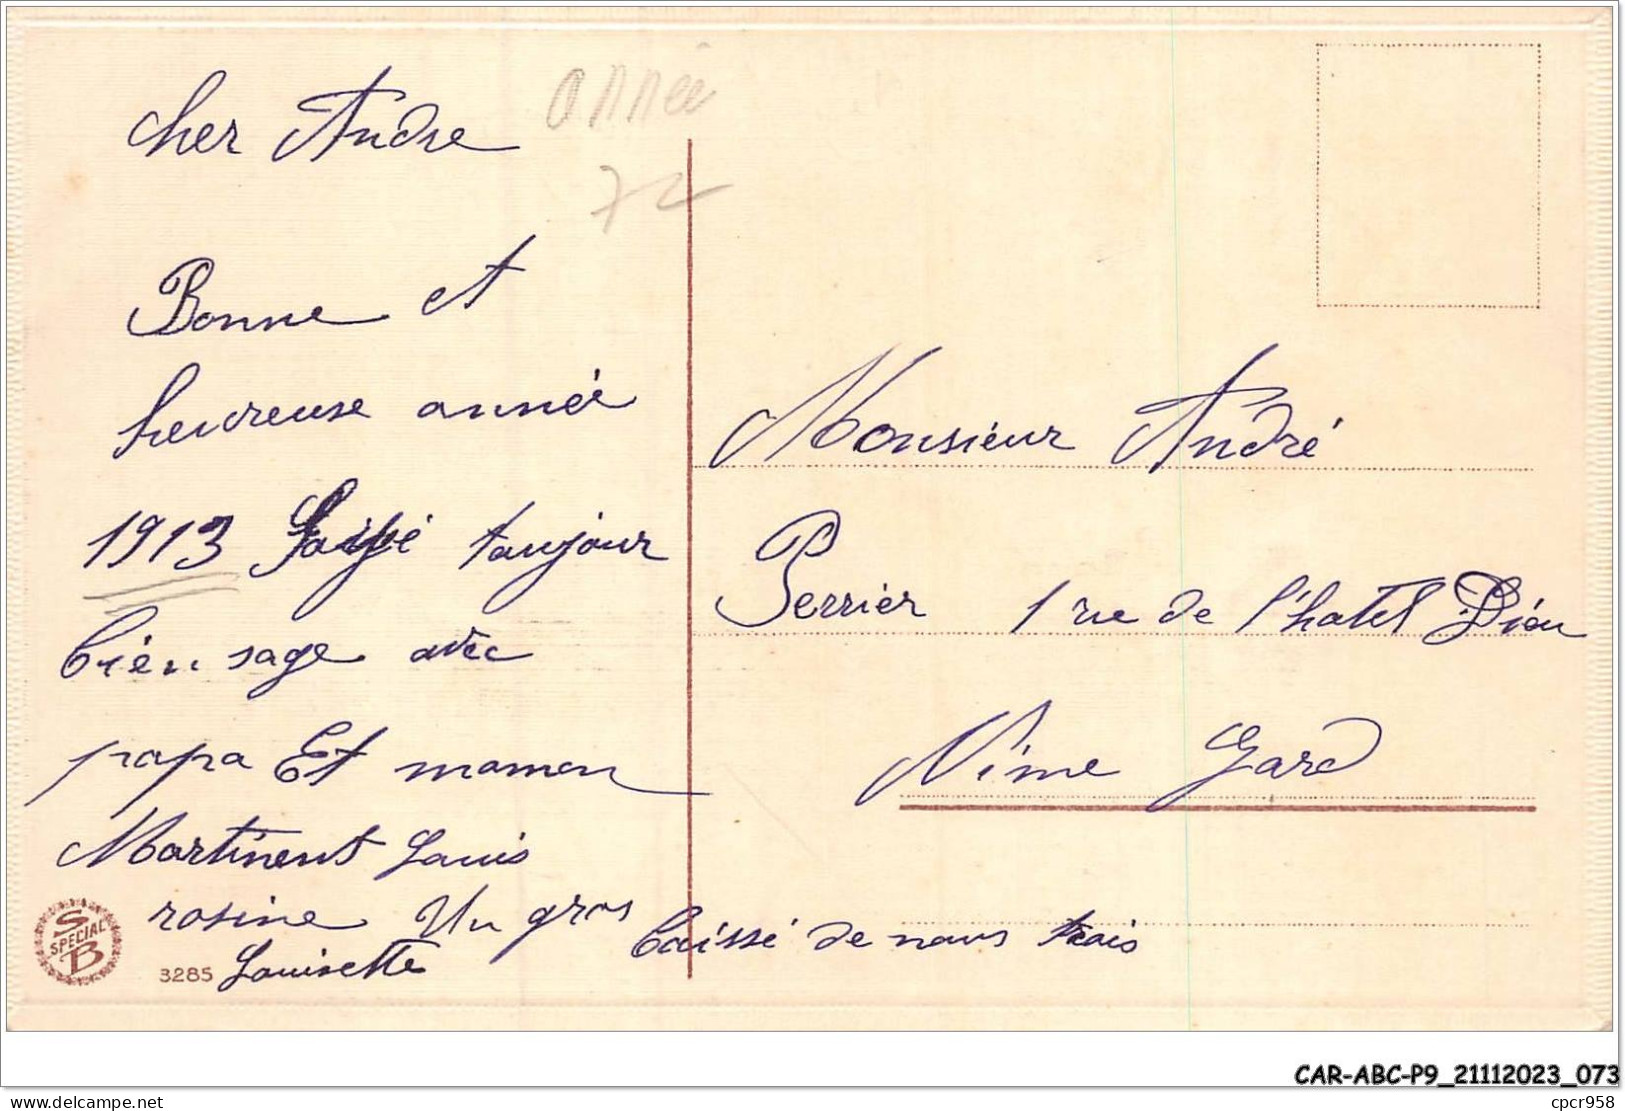 cher Andre
année
72
Bonne et
heureuse année
1913 toujour
bien sage avec
papa Et maman
Martinent Louis
rosine Un gros baissé de nous trois
Louisette
Monsieur André
Perrier 1 rue de l'hatel Dieu
Nime Gard
S
SPECIAL
B
3285
CAR-ABC-P9_21112023_073
www.delcampe.net
cpcr958